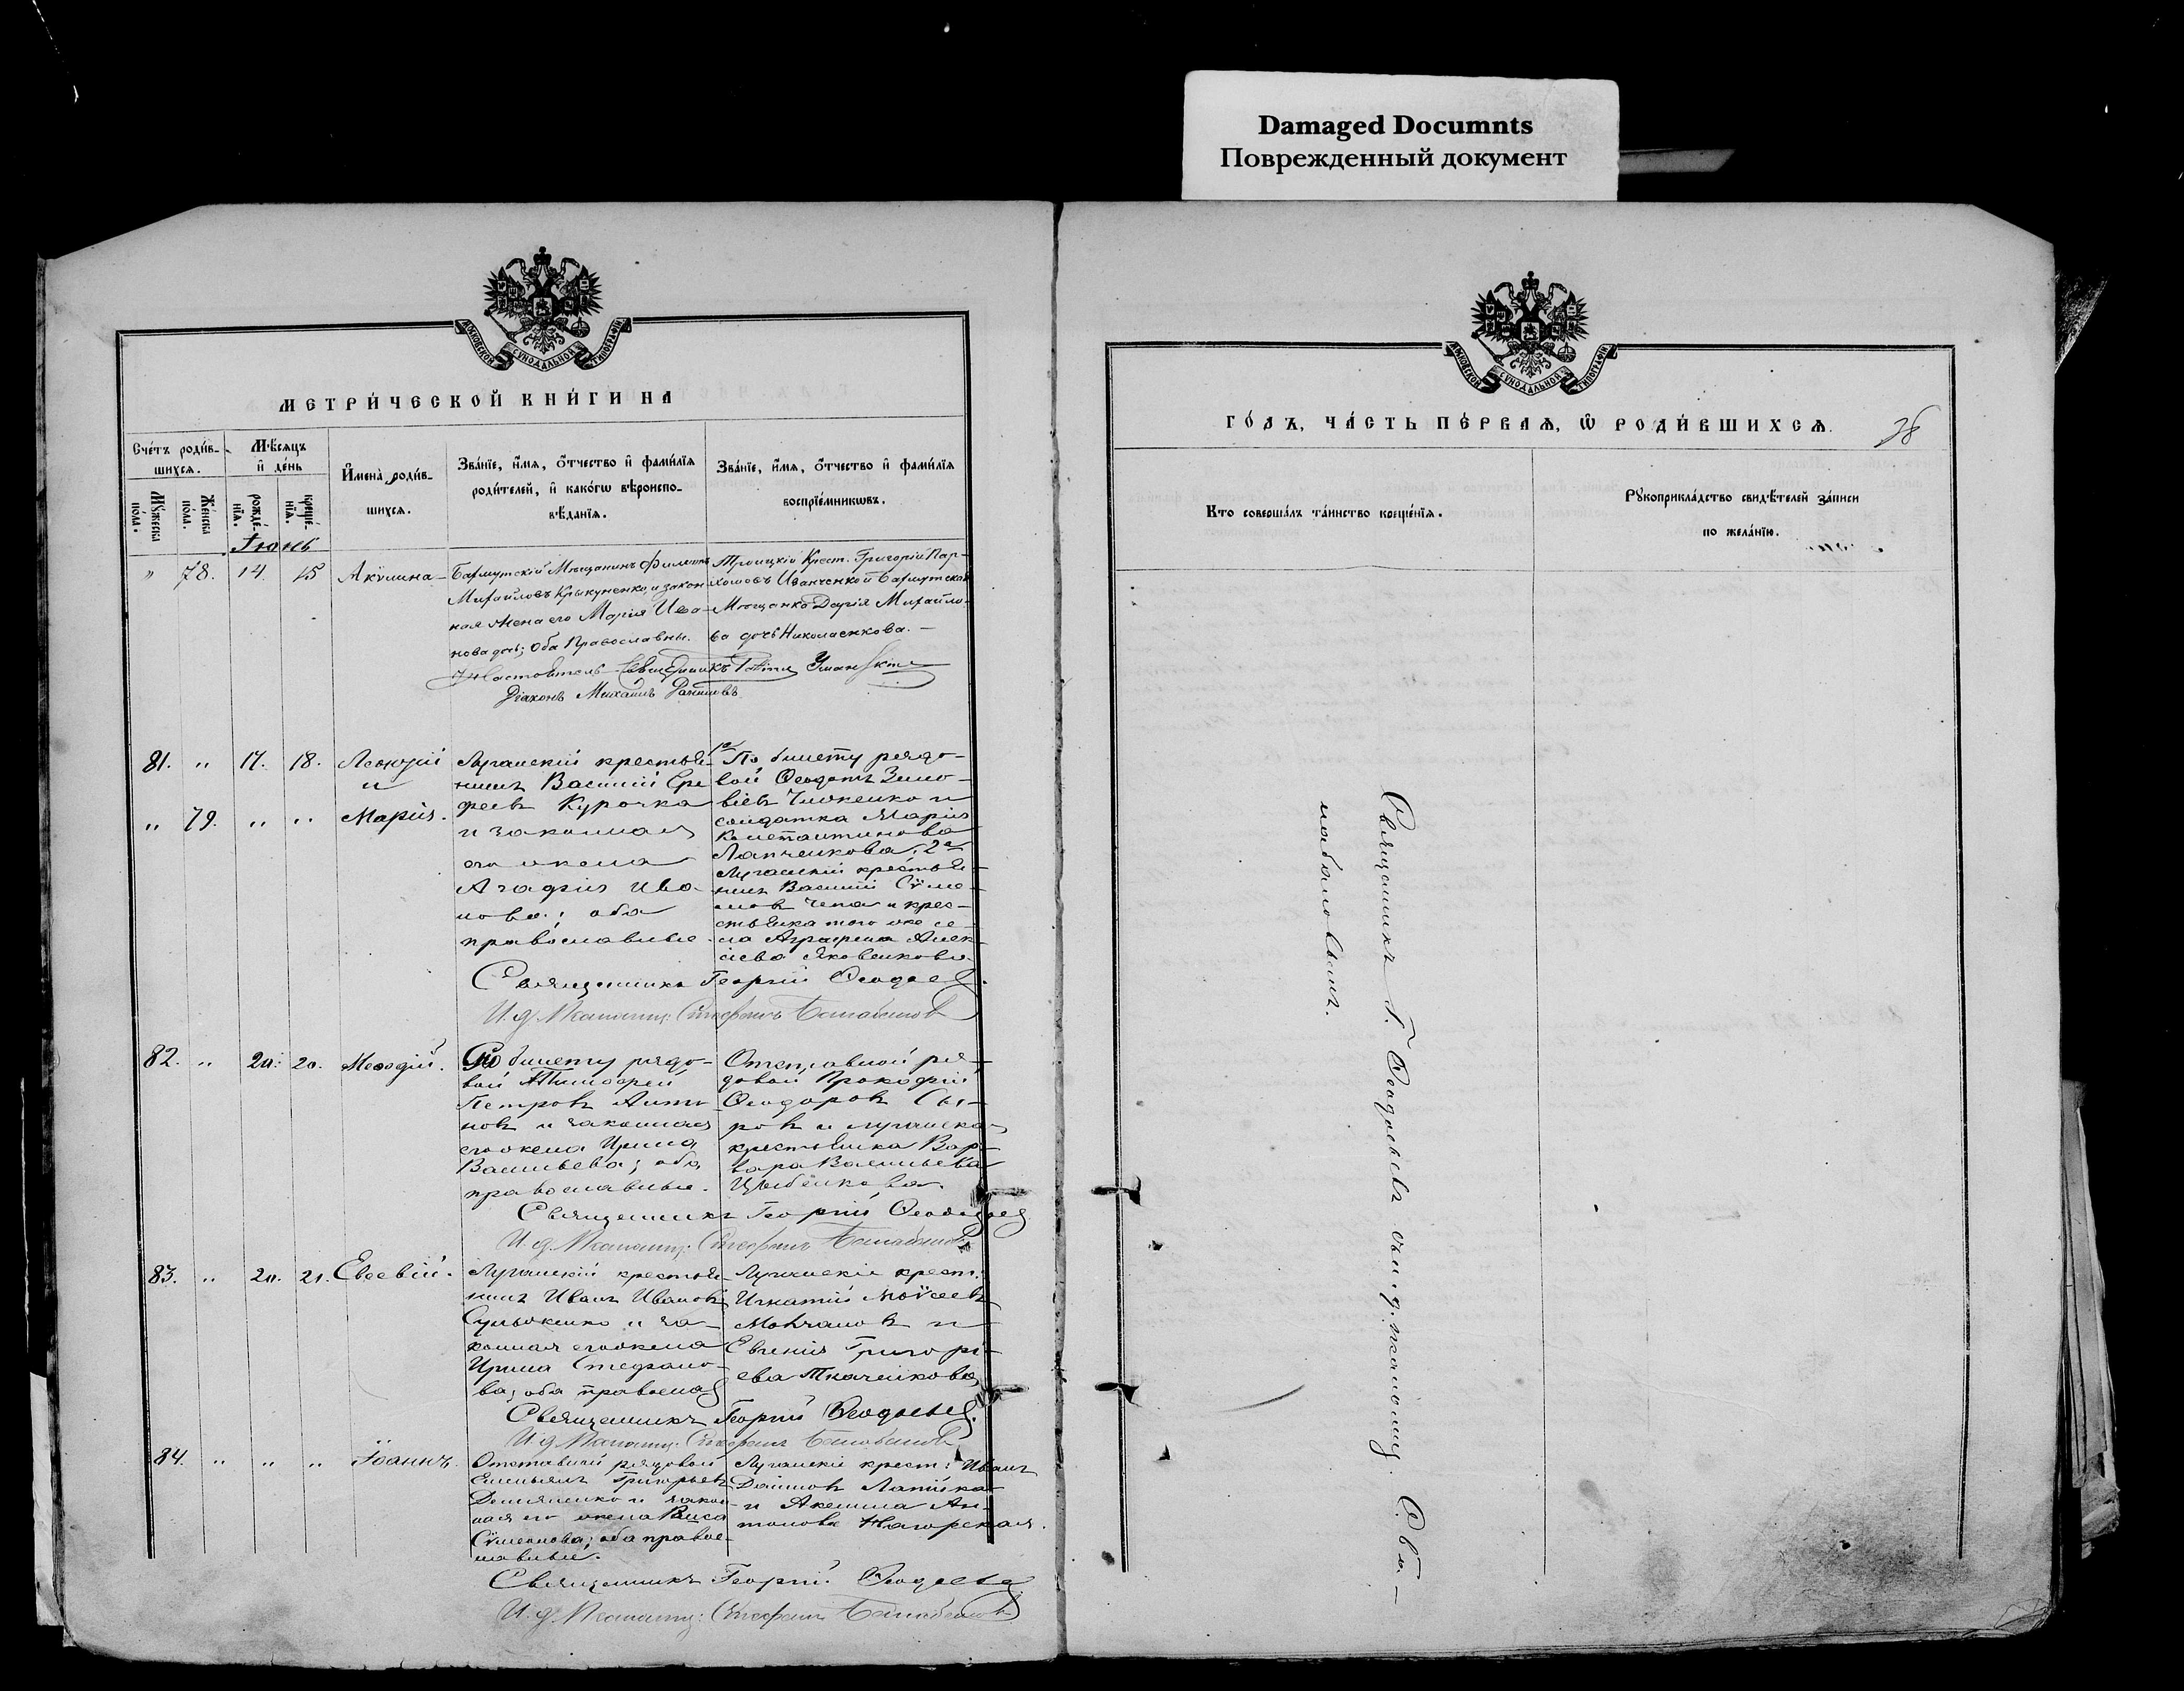 Damaged Documnts
Поврежденный документ
МОСКОВСКОЙ СѴНОДАЛЬНОЙ ТИПОГРАФІИ
МЕТРИ́ЧЕСКОЙ КНИ́ГИ НА
Сче́тъ роди́в-
шихся.
Мꙋ́жеска
по́ла.
Же́нска
по́ла.
Мѣ́сяцъ
и҆ де́нь
рожде́-
нїѧ.
креще́-
нїѧ.
И҆мена̀ роди́в-
шихся.
Зва́нїе, и҆́мѧ, ѻ҆́тчество и҆ фами́лїѧ
роди́телей, и҆ како́гѡ вѣроиспо-
вѣ́данїѧ.
Зва́нїе, и҆́мѧ, ѻ҆́тчество и҆ фами́лїѧ
воспрїе́мникѡвъ.
Іюнь
" 78. 14. 15 Акѵлина
Бахмутскій Мѣщанинъ Филиппъ
Михайловъ Крыкуненко, и закон
ная жена его Марія Ива-
нова дочь; Оба Православны.
Троицкій Крест. Григорій Пар-
хомовъ Иванченко и Бахмутская
Мѣщанка Дарія Михайло-
ва дочь Николаенкова.
Настоятель Священникъ Уманскій
Діаконъ Михаилъ
81. " 17. 18. Леонтій
и
" 79. " " Марія.
Луганскій крестья-
нинъ Василій Ере
феевъ Курочка
и законная
его жена
Агафія Ива-
нова; оба
православные.
1е По билету рядо-
вой Ѳеодотъ Зино-
віевъ Чиженко и
солдатка Марія
Константинова
Лапченкова, 2е
Луганскій крестья-
нинъ Василій Сѵме-
оновъ Чепа и крес-
тьянка того же се-
ла Аграфена Алек-
сіева Яковенкова
Священникъ Георгій Ѳеодосьев
И. д. Псаломщ:
82. " 20. 20. Меѳодій.
По билету рядо-
вой Тимофей
Петровъ Анто-
новъ и законная
его жена Ирина
Васильева; оба
православные.
Отставной ря-
довой Прокофій
Ѳеодоровъ Сы-
ровъ и луганска
крестьянка Вар-
вара Васильева
Цыбенкова.
Священникъ Георгій Ѳеодосьев
И. д. Псаломщ:
83. " 20. 21. Евсевій.
Луганскій крестья-
нинъ Иванъ Ивановъ
и за-
конная его жена
Ирина Стефано-
ва; оба правосл
Луганскіе крест.:
Игнатій Моѵсеевъ
Молчановъ и
Евгенія Григорі-
ева Ткаченкова
Священникъ Георгій Ѳеодосьев.
И. д. Псаломщ:
84. " " " Іоаннъ.
Отставной рядовой
Емельянъ Григорьевъ
Демяненко и закон-
ная его жена Раиса
Сѵмеонова; оба право-
славные.
Луганскіе крест: Иванъ
Даниловъ Лапшка
и Акилина Ан-
тонова Нагорская.
Священникъ Георгій Ѳеодосьев
И. д. Псаломщ:
МОСКОВСКОЙ СѴНОДАЛЬНОЙ ТИПОГРАФІИ
ГО́ДЪ, ЧА́СТЬ ПЕ́РВАѦ, Ѡ РОДИ́ВШИХСѦ.
38
Кто соверша́лъ та́инство креще́нїѧ.
Рꙋкоприкла́дство свидѣ́телей за́писи
по жела́нїю.
Священникъ Г. Ѳеодосьевъ съ и. д. псаломщ.